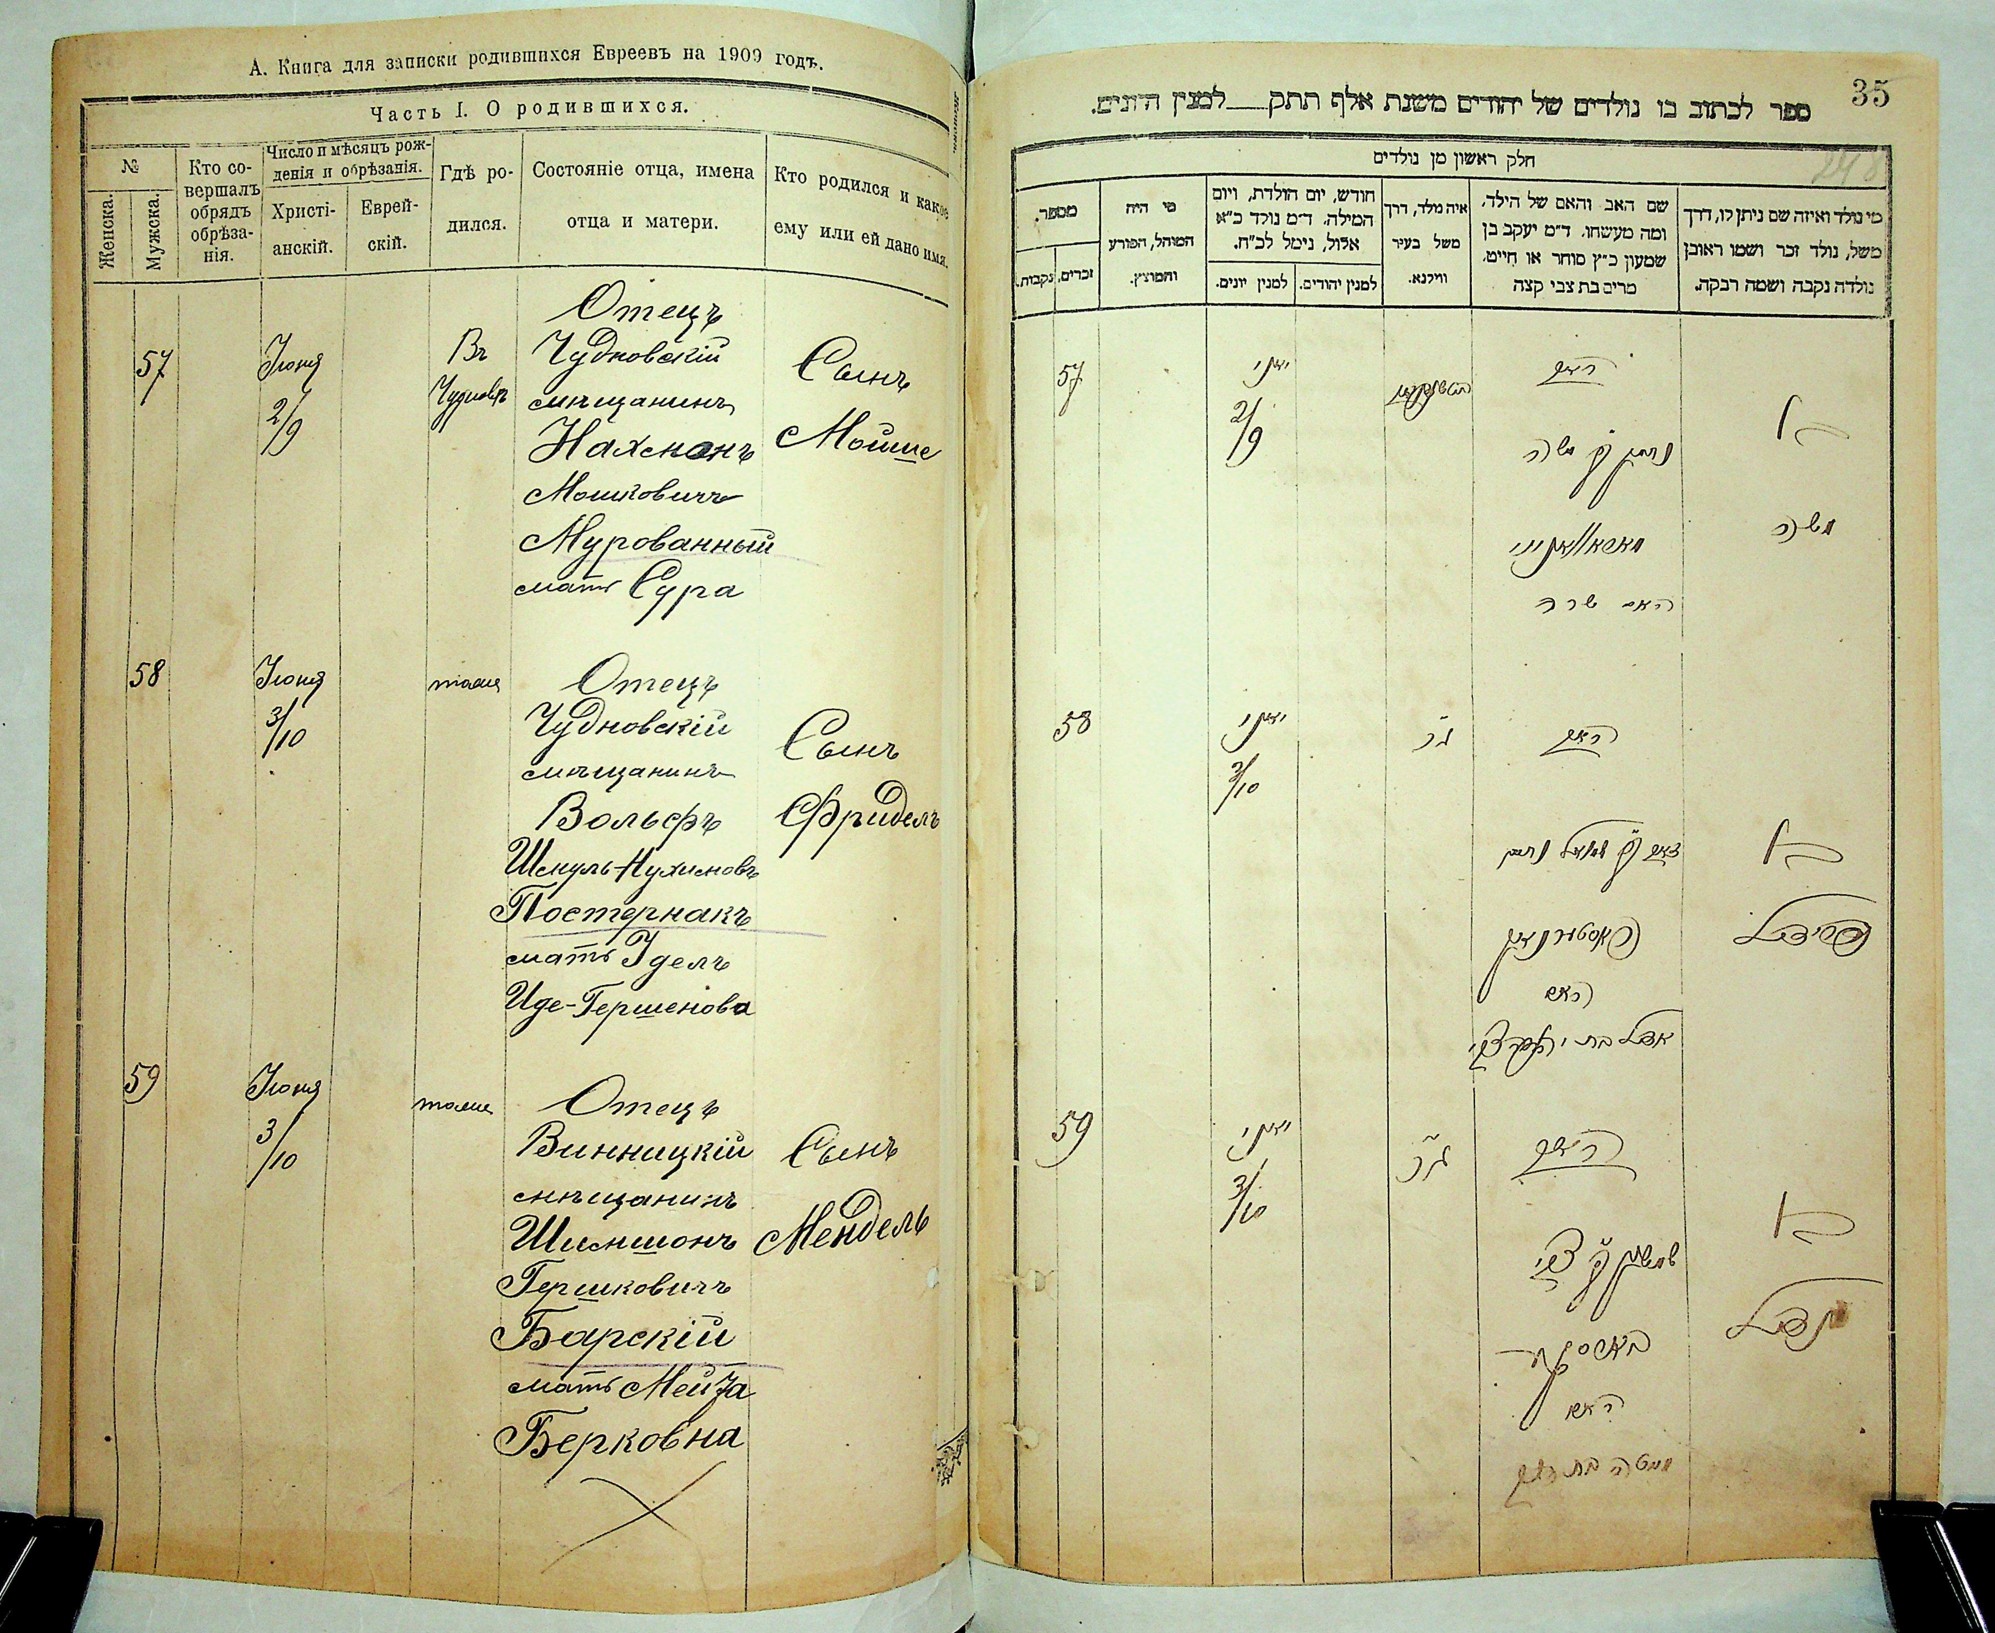 А. Книга для записки родившихся Евреевъ на 1909 годъ.
Часть I. О родившихся.
№
Женска.
Мужска.
Кто со-
вершалъ
обрядъ
обрѣза-
нія.
Число и мѣсяцъ рож-
денія и обрѣзанія.
Христі-
анскій.
Еврей-
скій.
Гдѣ ро-
дился.
Состояніе отца, имена
отца и матери.
Кто родился и какое
ему или ей дано имя.
57
Іюня
2/9
Въ
Чудновѣ
Отецъ
Чудновскій
мѣщанинъ
Нахманъ
Мошковичъ
Мурованный
мать Сура
Сынъ
Мойше
58
Іюня
3/10
тоже
Отецъ
Чудновскій
мѣщанинъ
Вольфъ
Шмуль-Нухимовъ
Постернакъ
мать Іделъ
Иде-Гершенова
Сынъ
Фридель
59
Іюня
3/10
тоже
Отецъ
Винницкій
мѣщанинъ
Шимшонъ
Гершковичъ
Барскій
мать Мейта
Берковна
Сынъ
Мендель
35
248
ספר לכתוב בו נולדים של יהודים משנת אלף תתק למנין היונים.
חלק ראשון מן נולדים
מי נולד ואיזה שם ניתן לו, דרך
משל, נולד זכר ושמו ראובן
נולדה נקבה ושמה רבקה.
שם האב והאם של הילד,
ומה מעשהו. ד״מ יעקב בן
שמעון כ״ץ סוחר או חייט,
מרים בת צבי קצה
איה מלד, דרך
משל בעיר
ווילנא.
חודש, יום הולדת, ויום
המילה. ד״מ נולד כ״א
אלול, נימל לכ״ח.
למנין יהודים.
למנין יונים.
מי היה
המוהל, הפורע
והמוצץ.
מספר.
זכרים.
נקבות.
57
יוני
2/9
האב
נחמן בן משה
האם שרה
משה
58
יוני
3/10
האב
זאב בן שמואל נחום
פאסטערנאק
האם
פרידל
59
יוני
3/10
האב
שמשון בן צבי
בארסקי
האם
מענדל